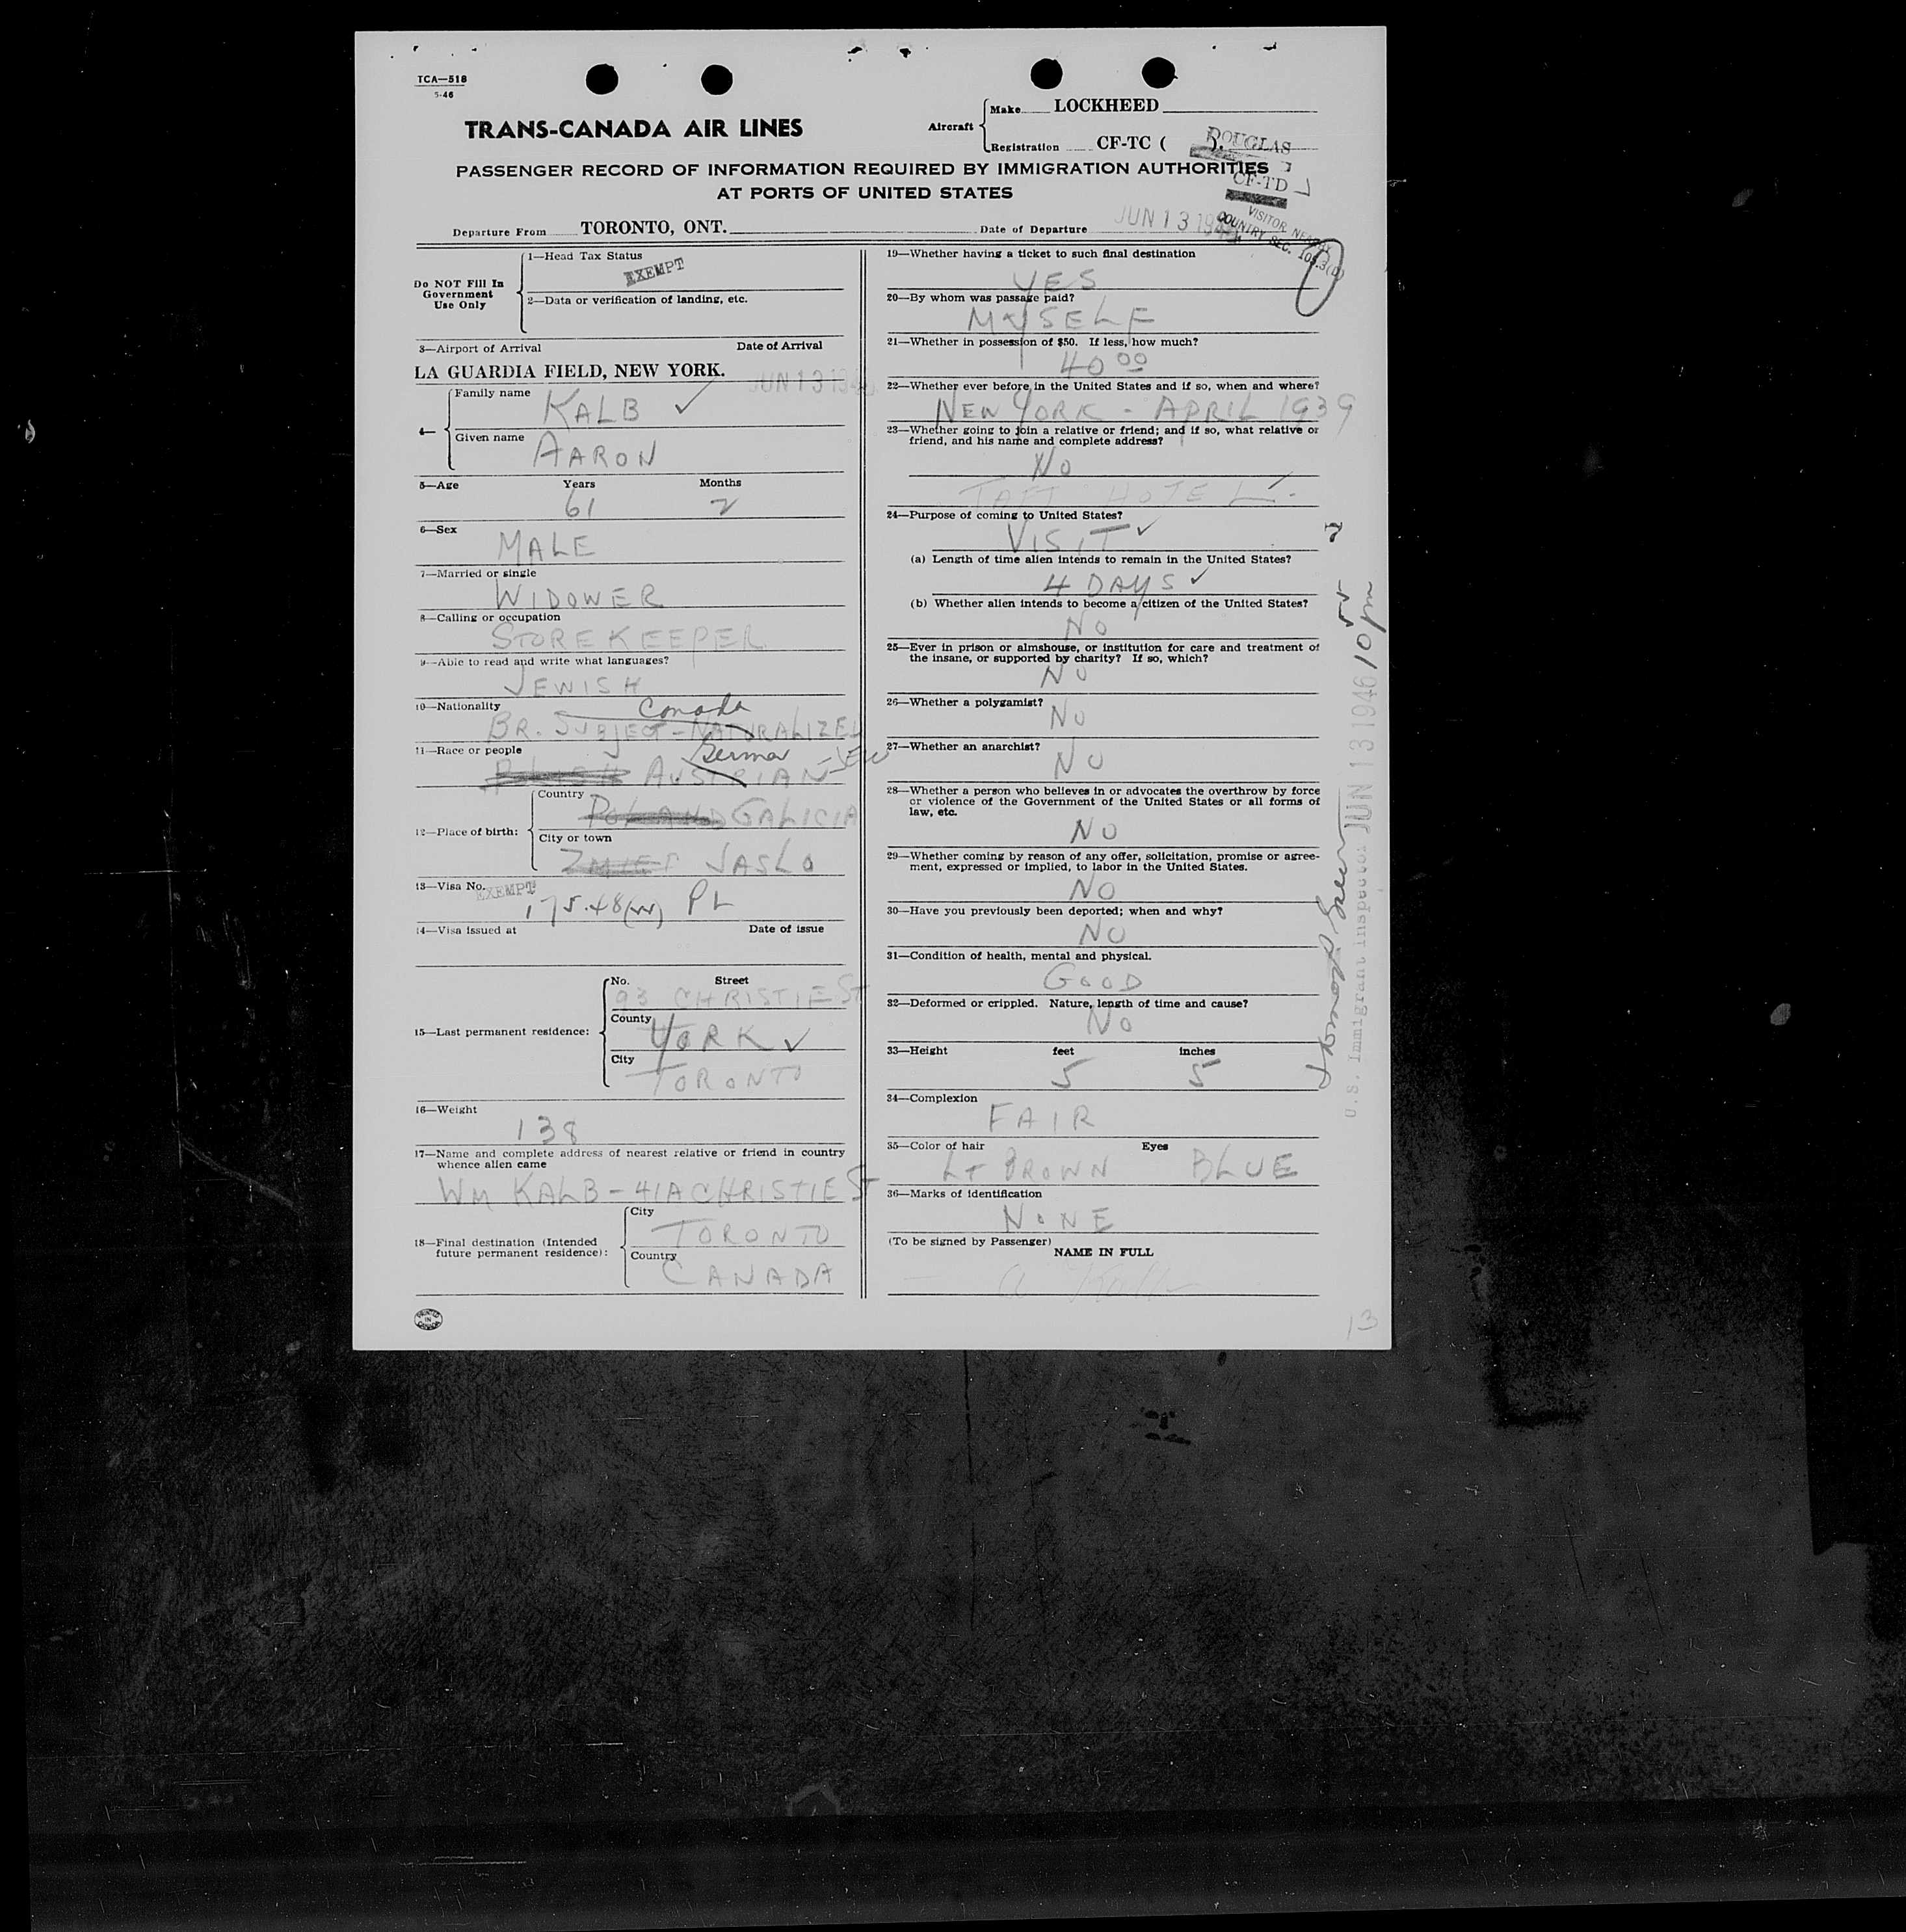 TCA—518
5-46
TRANS-CANADA AIR LINES
Aircraft
Make LOCKHEED
Registration CF-TC ( ).
DOUGLAS
CF-TD
PASSENGER RECORD OF INFORMATION REQUIRED BY IMMIGRATION AUTHORITIES
AT PORTS OF UNITED STATES
VISITOR NEARBY
COUNTRY SEC.
Departure From TORONTO, ONT. Date of Departure JUN 13
Do NOT Fill In
Government
Use Only
1—Head Tax Status
EXEMPT
2—Data or verification of landing, etc.
3—Airport of Arrival Date of Arrival
LA GUARDIA FIELD, NEW YORK. JUN 13 1946
4—
Family name
KALB ✓
Given name
AARON
5—Age Years Months
61 2
6—Sex
MALE
7—Married or single
WIDOWER
8—Calling or occupation
STOREKEEPER
9—Able to read and write what languages?
JEWISH
10—Nationality
Canada
BR. SUBJECT-NATURALIZED
11—Race or people
German
AUSTRIAN-JEW
12—Place of birth:
Country
POLAND GALICIA
City or town
JASLO
13—Visa No.
EXEMPT
175.48(W) PL
14—Visa issued at Date of issue
15—Last permanent residence:
No. Street
93 CHRISTIE ST
County
YORK ✓
City
TORONTO
16—Weight
138
17—Name and complete address of nearest relative or friend in country
whence alien came
WM KALB - 41A CHRISTIE ST
18—Final destination (Intended
future permanent residence):
City
TORONTO
Country
CANADA
19—Whether having a ticket to such final destination
YES
20—By whom was passage paid?
MYSELF
21—Whether in possession of $50. If less, how much?
40 00
22—Whether ever before in the United States and if so, when and where?
NEW YORK - APRIL 1939
23—Whether going to join a relative or friend; and if so, what relative or
friend, and his name and complete address?
NO
TAFT HOTEL
24—Purpose of coming to United States?
VISIT ✓
(a) Length of time alien intends to remain in the United States?
4 DAYS ✓
(b) Whether alien intends to become a citizen of the United States?
NO
25—Ever in prison or almshouse, or institution for care and treatment of
the insane, or supported by charity? If so, which?
NO
26—Whether a polygamist?
NO
27—Whether an anarchist?
NO
28—Whether a person who believes in or advocates the overthrow by force
or violence of the Government of the United States or all forms of
law, etc.
NO
29—Whether coming by reason of any offer, solicitation, promise or agree-
ment, expressed or implied, to labor in the United States.
NO
30—Have you previously been deported; when and why?
NO
31—Condition of health, mental and physical.
GOOD
32—Deformed or crippled. Nature, length of time and cause?
NO
33—Height feet inches
5 5
34—Complexion
FAIR
35—Color of hair Eyes
LT BROWN BLUE
36—Marks of identification
NONE
(To be signed by Passenger)
NAME IN FULL
A Kalb
U.S. Immigrant Inspector JUN 13 1946 10 55 pm
PRINTED IN CANADA
13